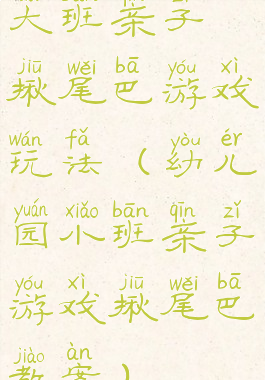 大班亲子
jiū wěi bā yóu xì
揪尾巴游戏
wán fǎ yòu ér
玩法（幼儿
yuán xiǎo bān qīn zǐ
园小班亲子
yóu xì jiū wěi bā
游戏揪尾巴
jiào àn
教案）